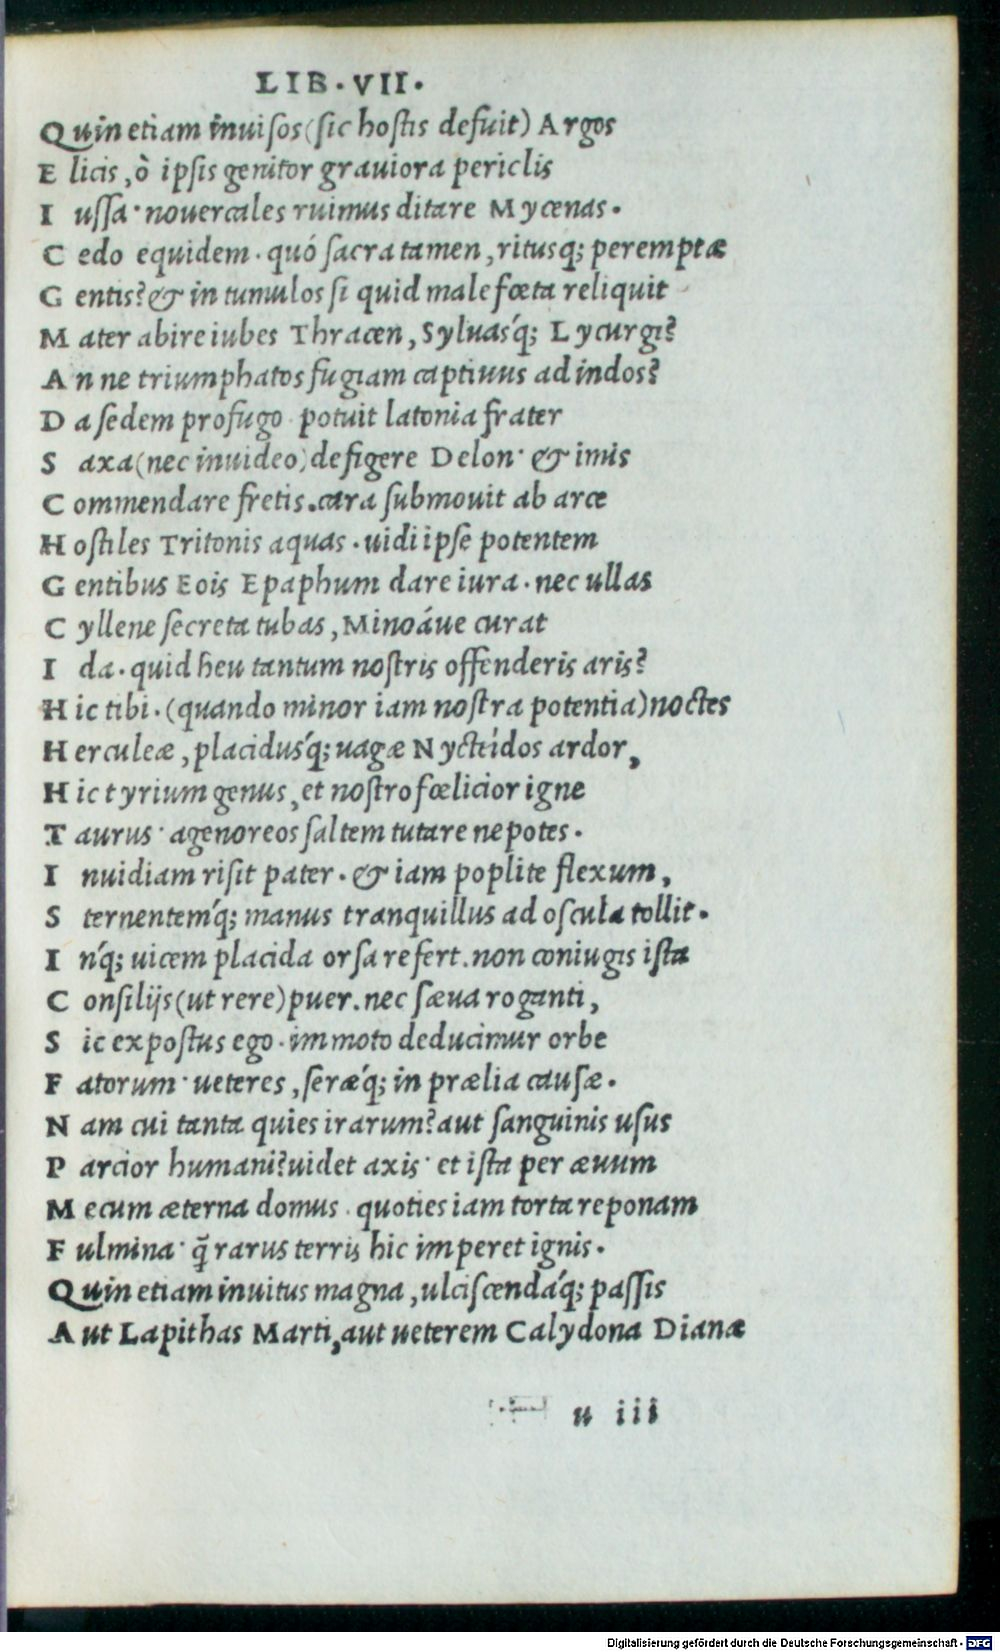 LIB·VII·
Quin etiam inuisos(sic hostis defuit) Argos
E licis, ò ipsis genitor grauiora periclis
I ussa· nouercales ruimus ditare Mycenas.
C edo equidem· quó sacra tamen, ritusq; peremptæ
G entis? & in tumulos si quid male fœta reliquit
M ater abire iubes Thracen, Syluasq́; Lycurgi?
A n ne triumphatos fugiam captiuus ad indos?
D a sedem profugo· potuit latonia frater
S axa(nec inuideo)defigere Delon· & imis
C ommendare fretis. cara submouit ab arce
H ostiles Tritonis aquas· uidi ipse potentem
G entibus Eois Epaphum dare iura· nec ullas
C yllene secreta tubas, Minoáue curat
I da· quid heu tantum nostris offenderis aris?
H ic tibi·(quando minor iam nostra potentia)noctes
H erculeæ, placidusq́; uagæ Nycteídos ardor,
H ic tyrium genus, et nostro fœlicior igne
T aurus· agenoreos saltem tutare nepotes·
I nuidiam risit pater· & iam poplite flexum,
S ternentemq́; manus tranquillus ad oscula tollit·
I nq́; uicem placida orsa refert. non coniugis ista
C onsilijs(ut rere)puer. nec sæua roganti,
S ic expostus ego· immoto deducimur orbe
F atorum· ueteres, seræq́; in prælia causæ·
N am cui tanta quies irarum? aut sanguinis usus
P arcior humani? uidet axis· et ista per æuum
M ecum æterna domus· quoties iam torta reponam
F ulmina· q̃ rarus terris hic imperet ignis·
Quin etiam inuitus magna, ulciscendáq; passis
A ut Lapithas Marti, aut ueterem Calydona Dianæ
u iii
Digitalisierung gefördert durch die Deutsche Forschungsgemeinschaft - DFG